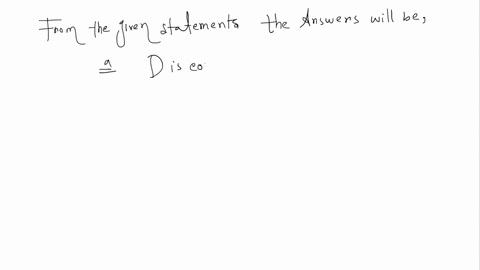 From the given statements the Answers will be,
a D is co